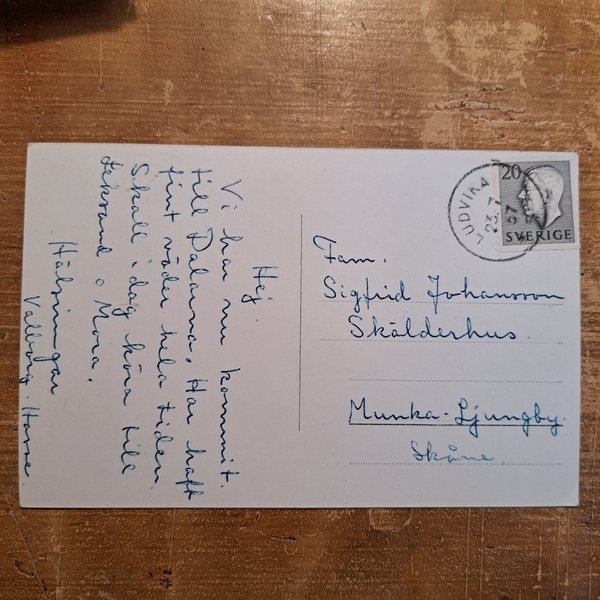 Hej.
Vi har nu kommit
till Dalarna, Har haft
fint väder hela tiden.
Skall i dag köra till
Leksand o Mora.
Hälsningar
Valborg. Hasse.
LUDVIKA
23. 7
57
20
SVERIGE
Fam.
Sigfrid Johansson
Skälderhus.
Munka-Ljungby.
Skåne